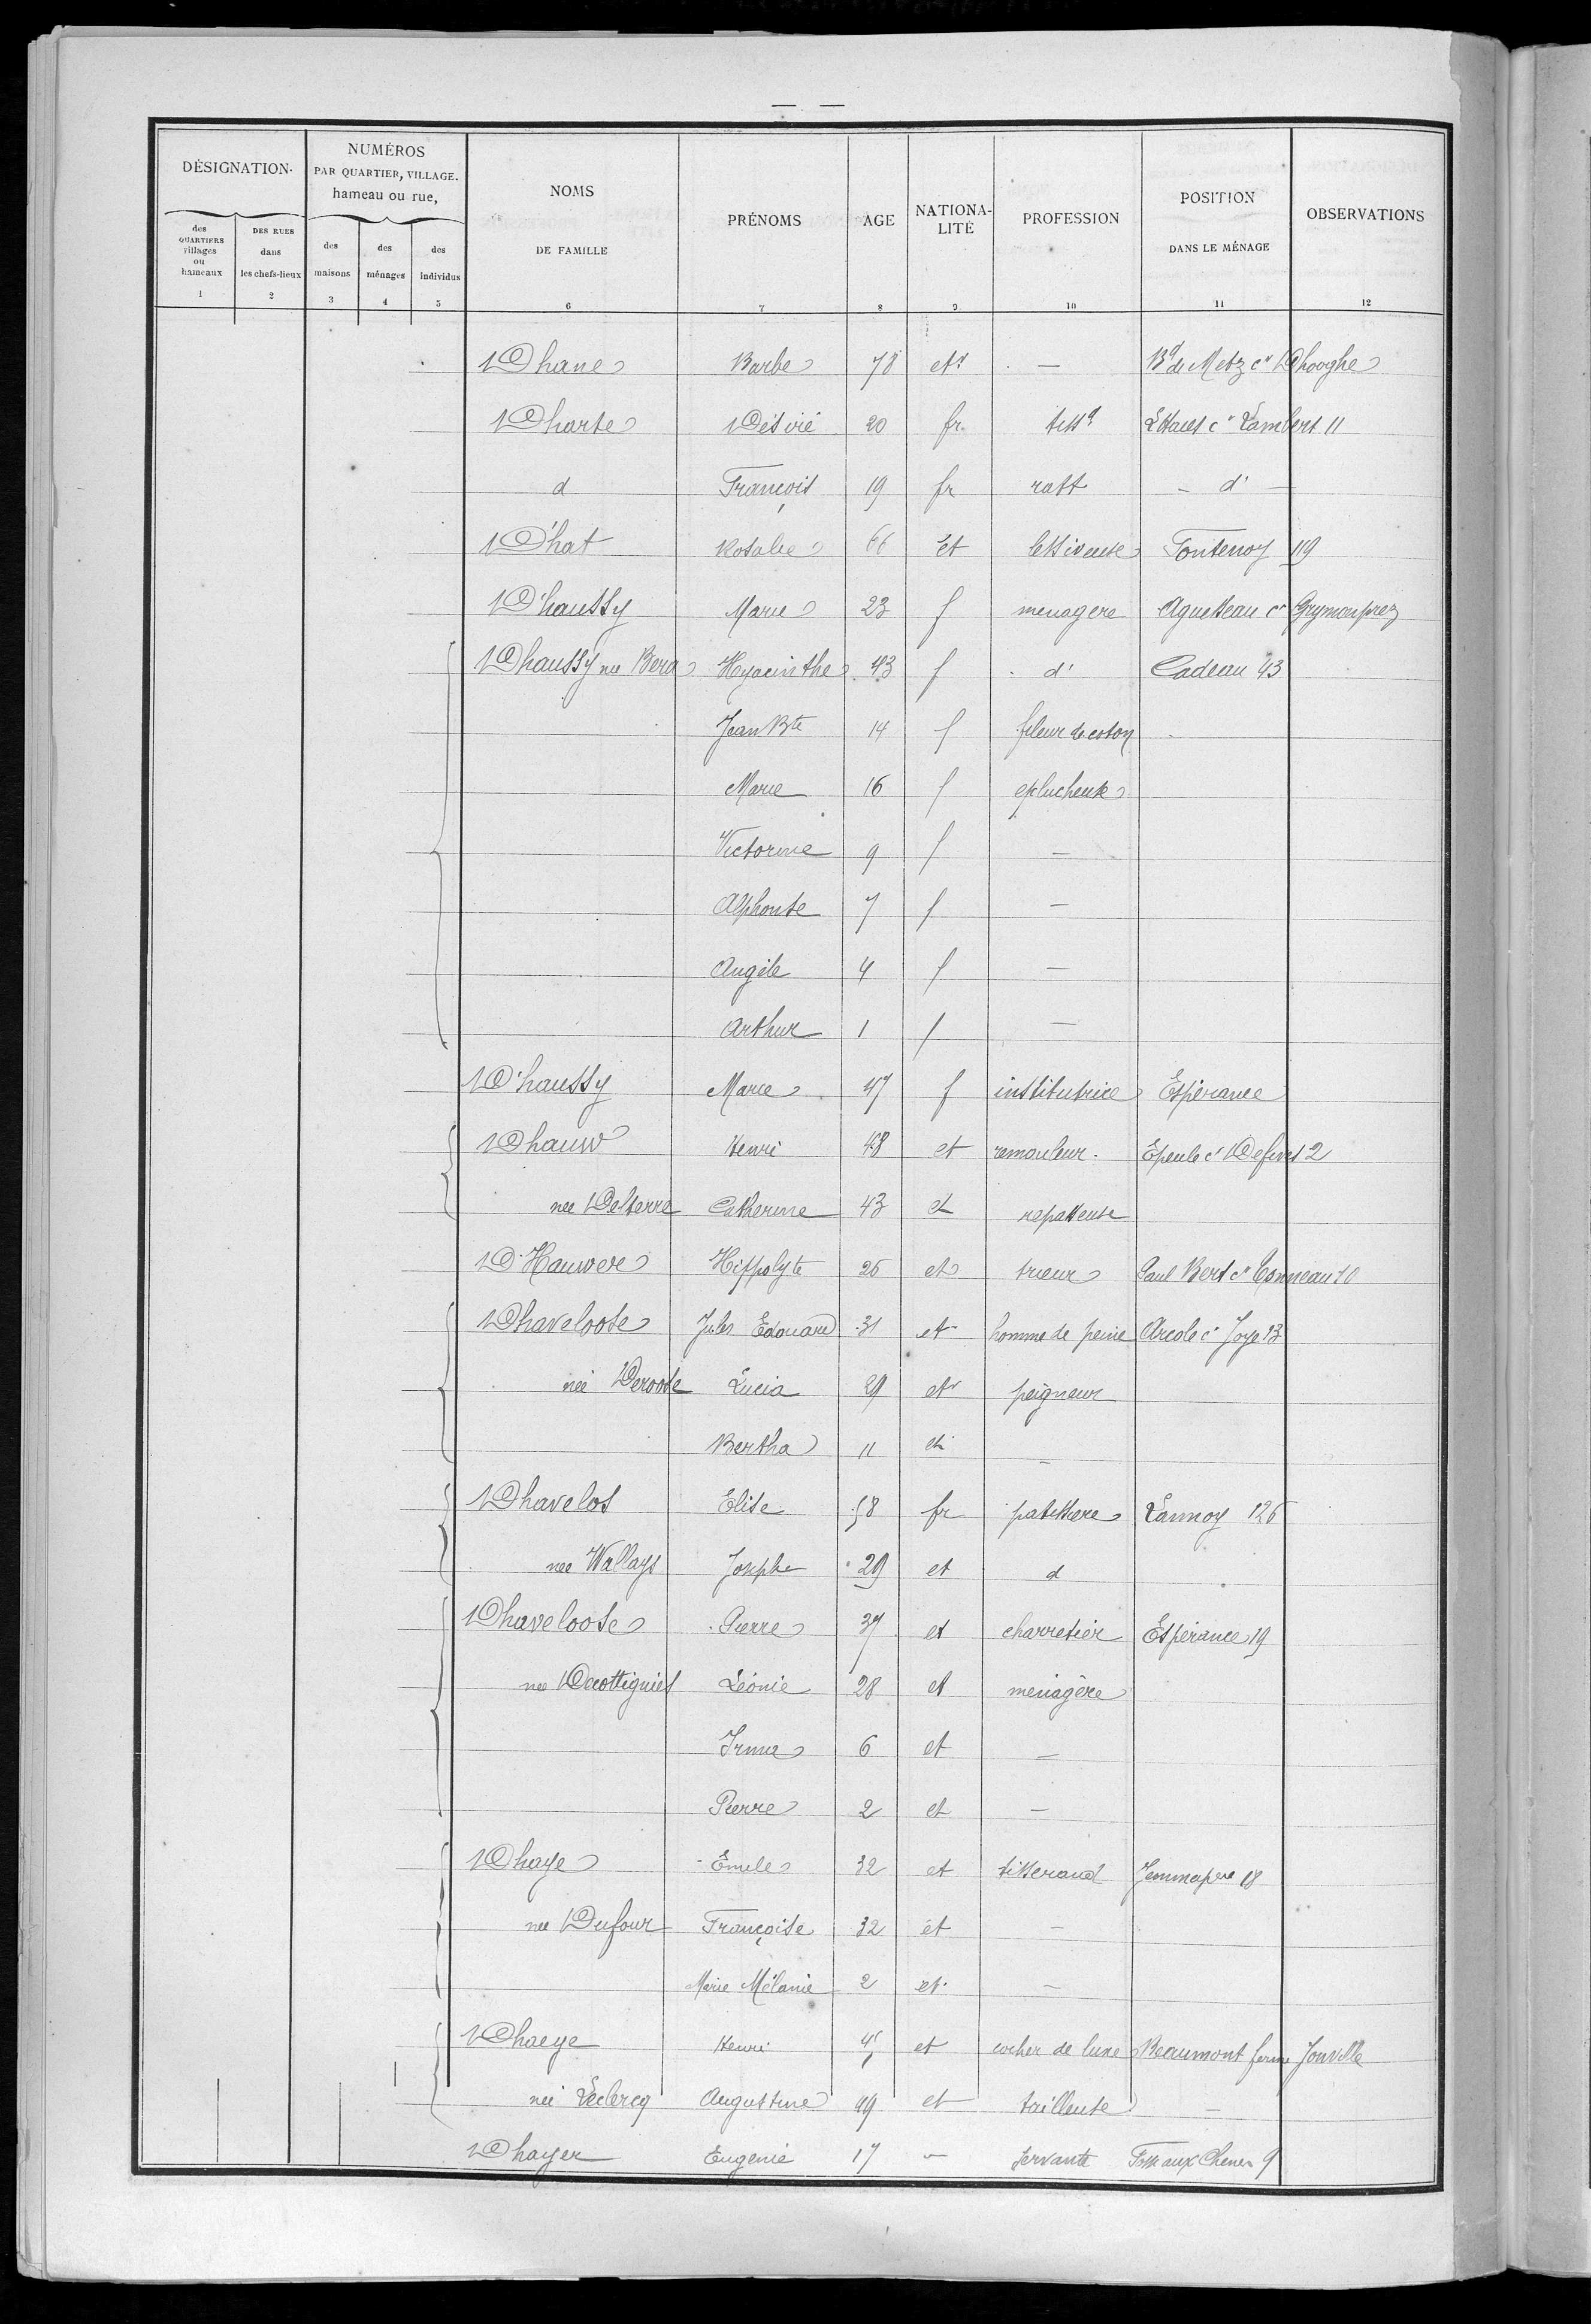 DÉSIGNATION.
NUMÉROS
PAR QUARTIER, VILLAGE.
hameau ou rue,
NOMS
DE FAMILLE
PRÉNOMS
AGE
NATIONA-
LITÉ
PROFESSION
POSITION
DANS LE MÉNAGE
OBSERVATIONS
des QUARTIERS villages ou hameaux
DES RUES dans les chefs-lieux
des maisons
des ménages
des individus
1 2 3 4 5 6 7 8 9 10 11 12
Dhane Barbe 78 etr — Bd de Metz cr Dhooghe
Dharte Désiré 20 fr. tissd cr Lambert 11
d François 19 fr ratt — d° —
D'hat Rosalie 66 et lessiveuse Fontenoy 119
D'haussy Marie 23 f menagere Aguesseau cr Grymonprez
Dhaussy née Bera Hyacinthe 43 f d° Cadeau 43
Jean Bte 14 f fileur de coton
Marie 16 f eplucheuse
Victorine 9 f —
Alphonse 7 f —
Angèle 4 f —
Arthur 1 f —
D'haussy Marie 47 f institutrice Espérance
Dhauw Henri 48 et remouleur. Epeule cr Defives 2
née Delterre Catherine 43 et repasseuse
D'Hauwere Hippolyte 26 et trieur Paul Bert cr Tonneau 10
Dhaveloose Jules Edouard 31 et homme de peine Arcole cr Joye 13
née Deroose Lucia 29 etr peigneur
Bertha 11 et —
Dhavelos Elise 58 fr patissiere Lannoy 126
née Wallays Josephe 29 et d
Dhaveloose Pierre 37 et charretier Espérance 19
née Decottignies Léonie 28 et menagère
Irma 6 et —
Pierre 2 et —
Dhaye Emile 32 et tisserand Jemmapes 18
née Dufour Françoise 32 et —
Marie Mélanie 2 et —
Dhaeye Henri et cocher de luxe Beaumont ferme Jonville
née Leclercq Augustine 49 et tailleuse —
Dhayer Eugenie 17 — servante Fosse aux Chenes 9